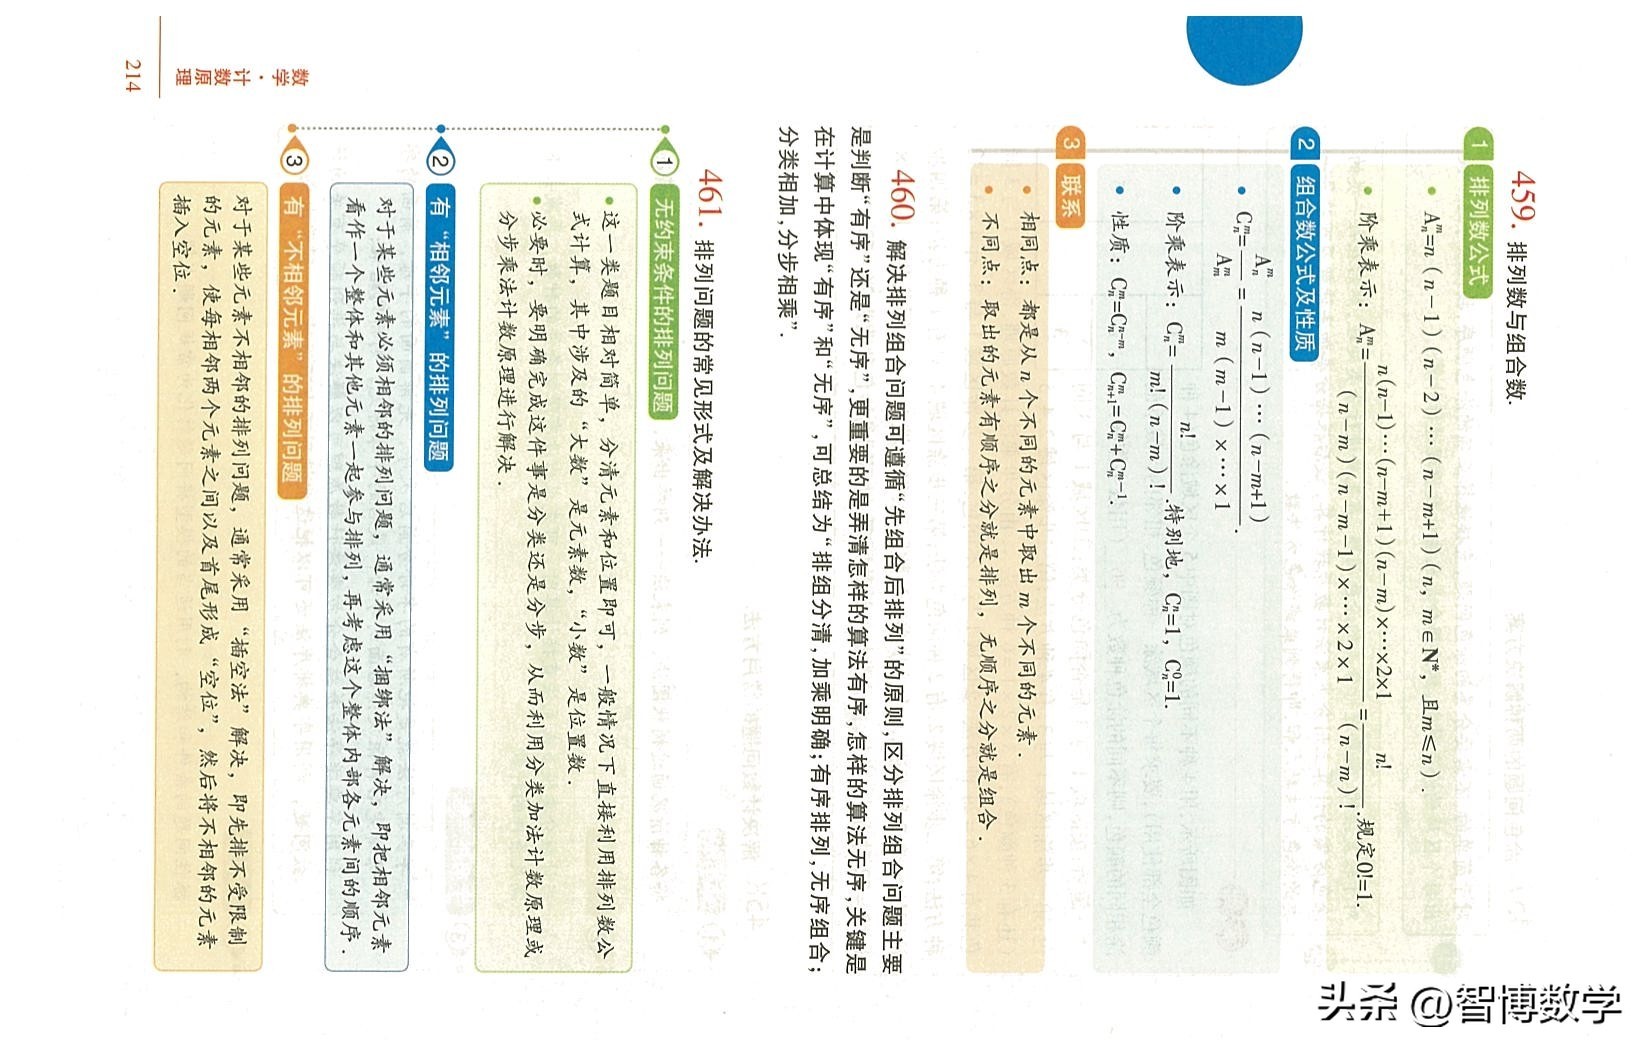 459. 排列数与组合数.
1 排列数公式
• Aₙᵐ=n(n-1)(n-2)…(n-m+1)(n, m∈N*, 且m≤n).
• 阶乘表示: Aₙᵐ= n(n-1)…(n-m+1)(n-m)×…×2×1 / (n-m)(n-m-1)×…×2×1 = n! / (n-m)! .规定0!=1.
2 组合数公式及性质
• Cₙᵐ= Aₙᵐ / Aₘᵐ = n(n-1)…(n-m+1) / m(m-1)×…×1 .
• 阶乘表示: Cₙᵐ= n! / m!(n-m)! .特别地, Cₙⁿ=1, Cₙ⁰=1.
• 性质: Cₙᵐ=Cₙⁿ⁻ᵐ, Cₙ₊₁ᵐ=Cₙᵐ+Cₙᵐ⁻¹.
3 联系
• 相同点: 都是从n个不同的元素中取出m个不同的元素.
• 不同点: 取出的元素有顺序之分就是排列, 无顺序之分就是组合.
460. 解决排列组合问题可遵循“先组合后排列”的原则,区分排列组合问题主要
是判断“有序”还是“无序”,更重要的是弄清怎样的算法有序,怎样的算法无序,关键是
在计算中体现“有序”和“无序”,可总结为“排组分清,加乘明确;有序排列,无序组合;
分类相加,分步相乘”.
461. 排列问题的常见形式及解决办法.
1 无约束条件的排列问题
• 这一类题目相对简单, 分清元素和位置即可, 一般情况下直接利用排列数公
式计算, 其中涉及的“大数”是元素数, “小数”是位置数.
• 必要时, 要明确完成这件事是分类还是分步, 从而利用分类加法计数原理或
分步乘法计数原理进行解决.
2 有“相邻元素”的排列问题
对于某些元素必须相邻的排列问题, 通常采用“捆绑法”解决, 即把相邻元素
看作一个整体和其他元素一起参与排列, 再考虑这个整体内部各元素间的顺序.
3 有“不相邻元素”的排列问题
对于某些元素不相邻的排列问题, 通常采用“插空法”解决, 即先排不受限制
的元素, 使每相邻两个元素之间以及首尾形成“空位”, 然后将不相邻的元素
插入空位.
数学·计数原理
214
头条 @智博数学